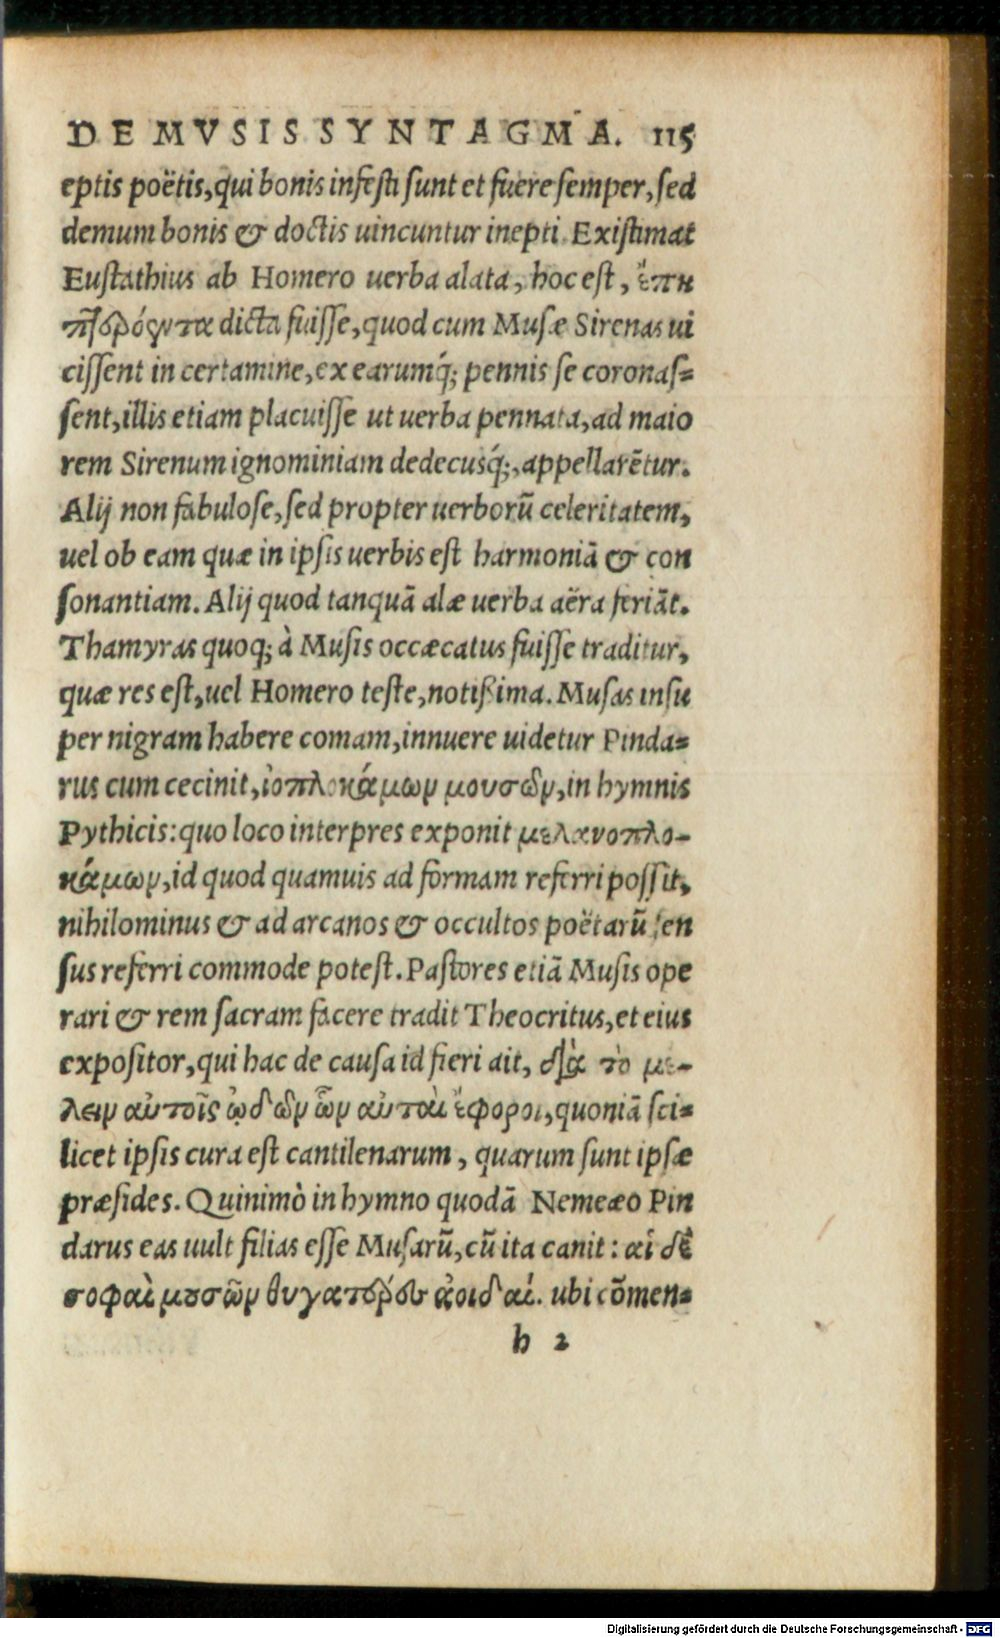 DE MVSIS SYNTAGMA. 115
eptis poëtis, qui bonis infesti sunt et fuere semper, sed
demum bonis & doctis uincuntur inepti. Existimat
Eustathius ab Homero uerba alata, hoc est, ἔπη
πτερόεντα dicta fuisse, quod cum Musæ Sirenas ui
cissent in certamine, ex earumq́; pennis se coronas-
sent, illis etiam placuisse ut uerba pennata, ad maio
rem Sirenum ignominiam dedecusq́;, appellarẽtur.
Alij non fabulose, sed propter uerborũ celeritatem,
uel ob eam quæ in ipsis uerbis est harmoniã & con
sonantiam. Alij quod tanquã alæ uerba aëra feriãt.
Thamyras quoq; à Musis occæcatus fuisse traditur,
quæ res est, uel Homero teste, notißima. Musas insu
per nigram habere comam, innuere uidetur Pinda-
rus cum cecinit, ἰοπλοκάμων μουσῶν, in hymnis
Pythicis: quo loco interpres exponit μελανοπλο-
κάμων, id quod quamuis ad formam referri possit,
nihilominus & ad arcanos & occultos poëtarũ sen
sus referri commode potest. Pastores etiã Musis ope
rari & rem sacram facere tradit Theocritus, et eius
expositor, qui hac de causa id fieri ait, διὰ τὸ μέ-
λειν αὐτοῖς ᾠδῶν ὧν αὐταὶ ἔφοροι, quoniã sci-
licet ipsis cura est cantilenarum, quarum sunt ipsæ
præsides. Quinimò in hymno quodã Nemeæo Pin
darus eas uult filias esse Musarũ, cũ ita canit: αἱ δὲ
σοφαὶ μουσῶν θυγατέρες ἀοιδαί. ubi cõmen-
h 2
Digitalisierung gefördert durch die Deutsche Forschungsgemeinschaft - DFG